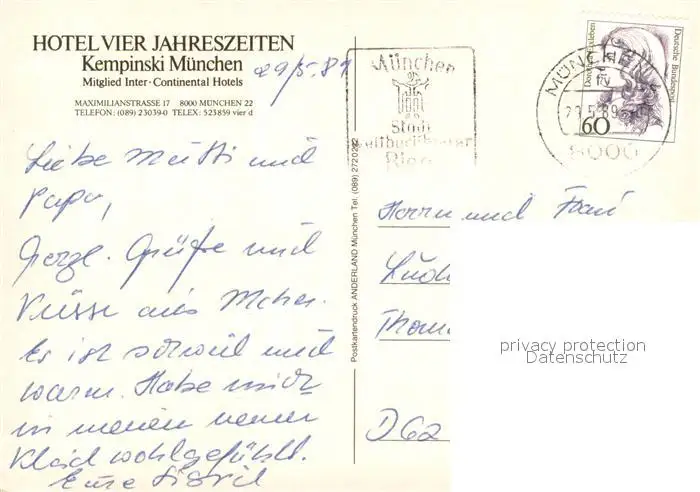 HOTEL VIER JAHRESZEITEN
Kempinski München
Mitglied Inter·Continental Hotels
MAXIMILIANSTRASSE 17 8000 MÜNCHEN 22
TELEFON: (089) 23039-0 TELEX: 523859 vier d
29/5.89
Liebe Mutti und
Papa,
Herzl. Grüße und
Küsse aus Mchn.
Es ist schwül und
warm. Habe mich
in meinem neuen
Kleid wohlgefühlt.
Eure Sigrid
Postkartendruck ANDERLAND München Tel. (089) 2720292
München
Stadt
Weltberühmter
MÜNCHEN
5.89
8000
Deutsche Bundespost
60
Herrn und Frau
D 62
privacy protection
Datenschutz